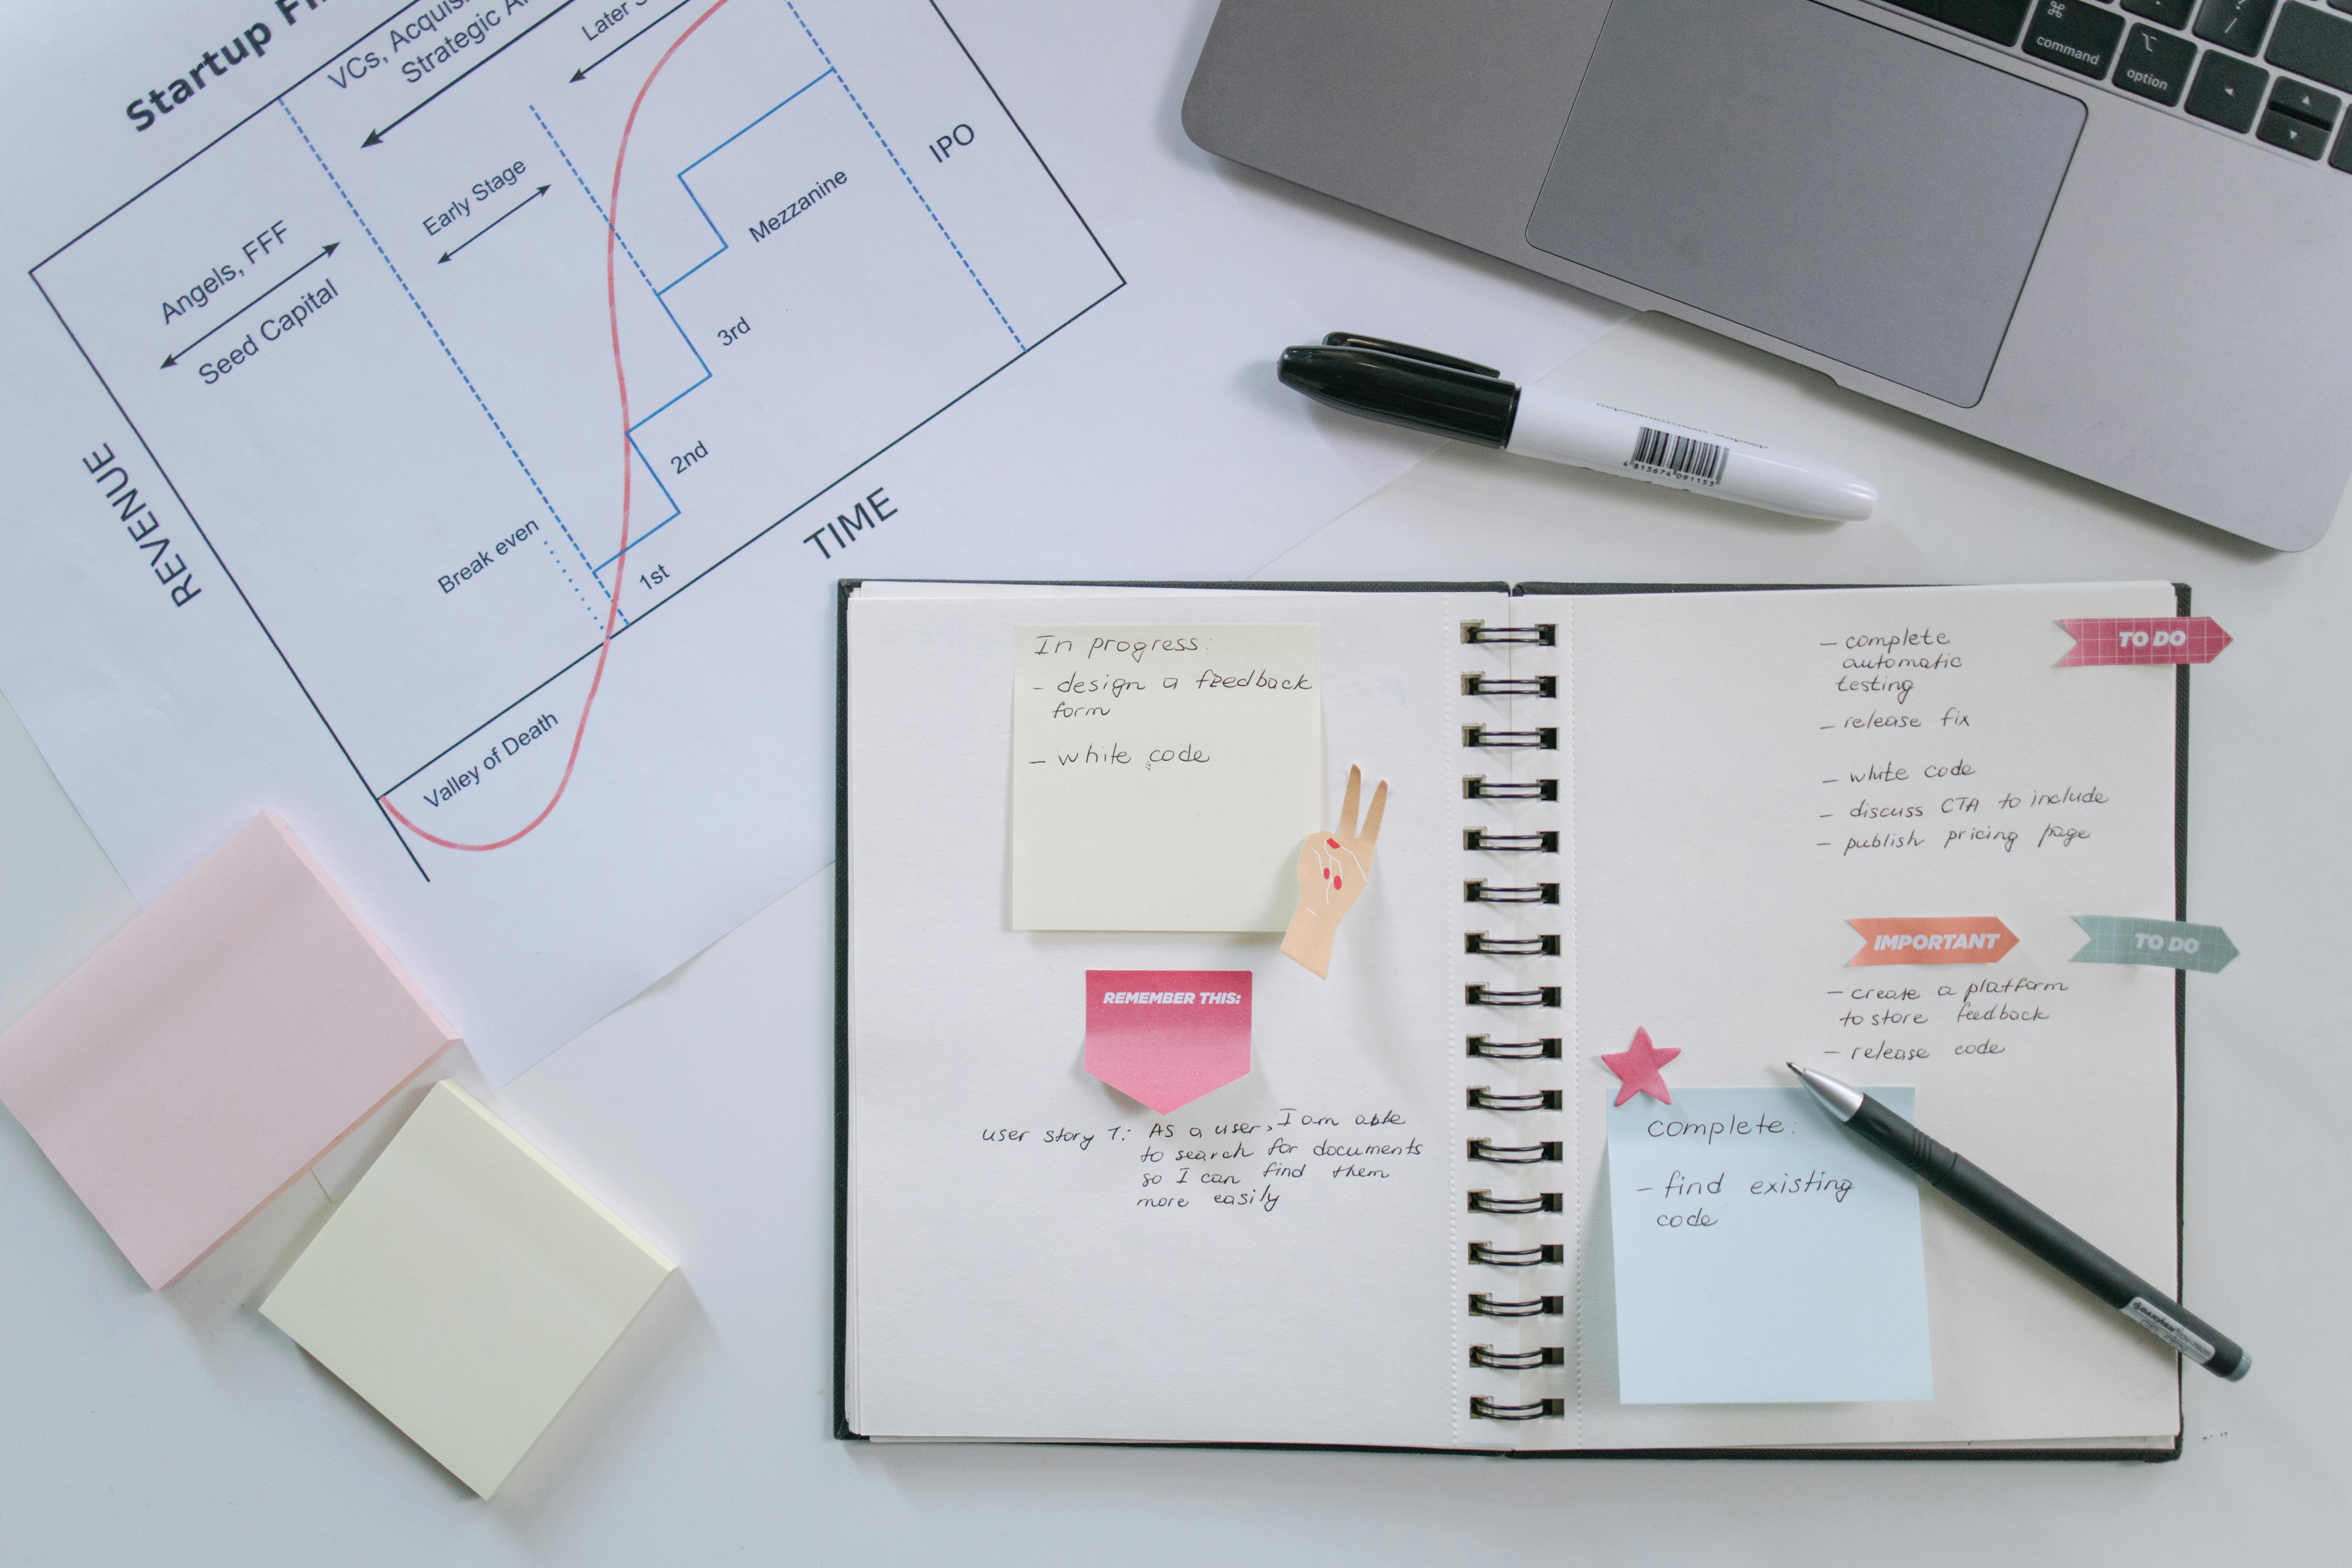 Startup
VCs,
Strategic
Later
Angels, FFF
Seed Capital
Early Stage
Mezzanine
IPO
3rd
2nd
1st
Break even
Valley of Death
REVENUE
TIME
command
option
4 813674 091153
In progress:
- design a feedback
form
- white code
REMEMBER THIS:
user story 1: As a user, I am able
to search for documents
so I can find them
more easily
TO DO
- complete
automatic
testing
- release fix
- white code
- discuss CTA to include
- publish pricing page
IMPORTANT
TO DO
- create a platform
to store feedback
- release code
complete:
- find existing
code